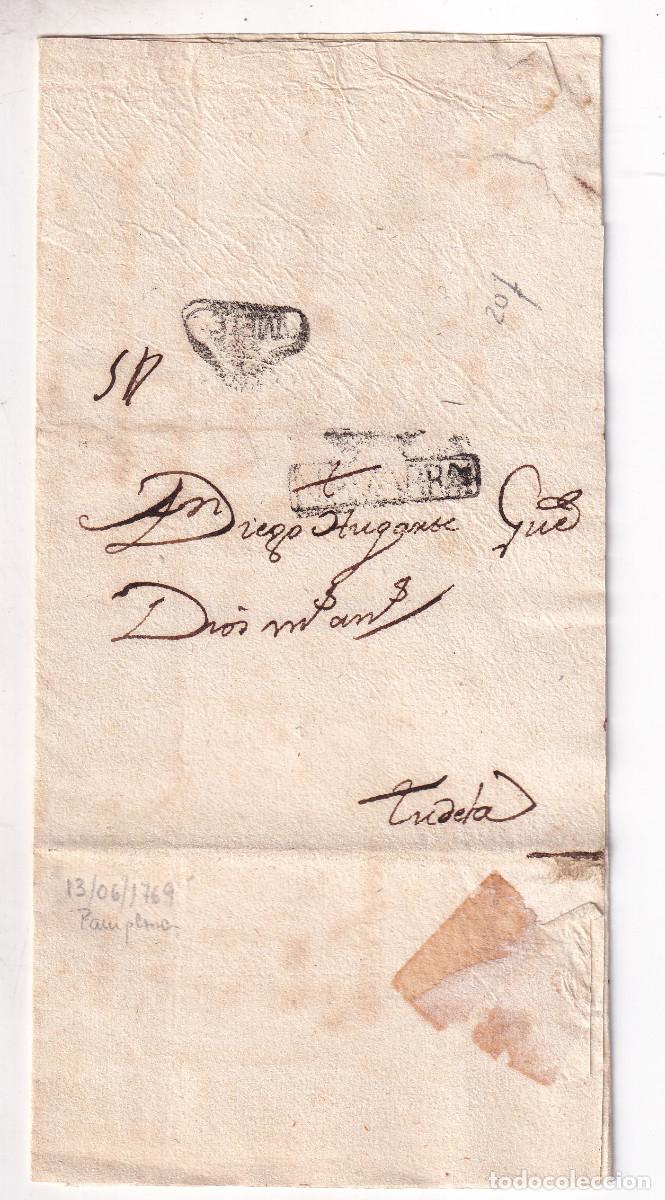 20/
A5
NAVARRA
A Dn Diego Hugarte Gue
Dios ms ans
Tudela
13/06/1769
Pamplona
todocoleccion